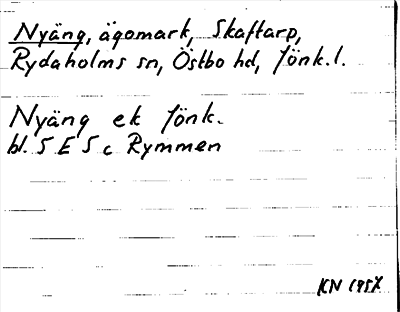 Nyäng, ägomark, Skaftarp,
Rydaholms sn, Östbo hd, Jönk. l.
Nyäng ek Jönk.
bl. 5 E 5 c Rymmen
KN 1957